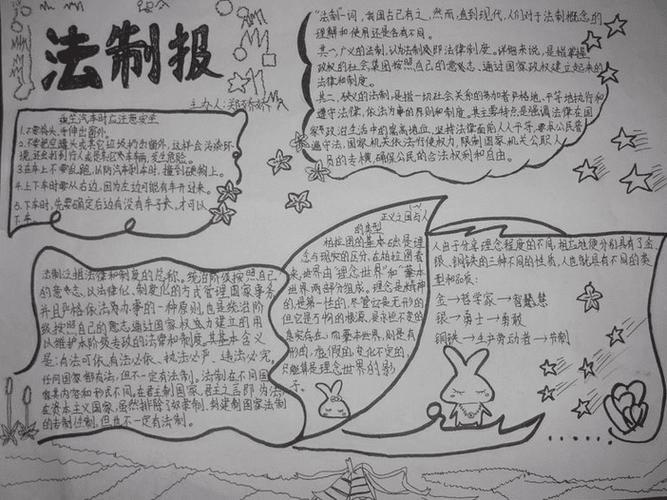 法制报
主办人:
乘坐汽车时应注意安全
1.不要将头、手伸出窗外。
2.不要把空罐头或其它垃圾扔出窗外,这样会污染环
境,还会打到行人或是其它汽车车辆,发生危险。
3.在车上不要乱跑,以防汽车刹车时,撞到硬物上。
4.上下车时要从右边,因为左边可能有车开过来。
5.下车时,先要确定后边有没有车子来,才可以
下车。
"法制"一词,我国古已有之,然而,直到现代,人们对于法制概念的
理解和使用还是各有不同。
其一,广义的法制,认为法制即法律制度。详细来说,是指掌握
政权的社会集团按照自己的意志、通过国家政权建立起来的
法律和制度。
其二,狭义的法制,是指一切社会关系的参加者严格地、平等地执行和
遵守法律,依法办事的原则和制度。其主要特点是强调法律在国
家政治生活中的崇高地位,坚持法律面前人人平等,要求公民普
遍守法,国家机关依法行使权力,限制国家机关公职人
员的专横,确保公民的合法权利和自由。
法制泛指法律和制度的总称。统治阶级按照自己
的意志,以法律化、制度化的方式管理国家事务,
并且严格依法办事的一种原则,也是统治阶
级按照自己的意志通过国家权力建立的用
以维护本阶级专政的法律和制度,其基本含义
是:有法可依、有法必依、执法必严、违法必究。
任何国家都有法,但不一定有法制。法制在不同国
家其内容和形式不同,在君主制国家,君主之言即为法,
在资本主义国家,虽然排除了奴隶制、封建制国家法制
的专制性制,但也不一定有法制。
正义之国与人
的类型
柏拉图的基本政治是理
念与现实的区分,在柏拉图看
来,世界由"理念世界"和"基本
世界"两部分组成,理念是精神
的,是第一性的,尽管它是无形的
但它是万物的根源,是永恒不变的
真实存在,而基本世界,则是有
形的,虚假的,变化不定的,
只能算是理念世界的影
子。
人由于分享理念程度的不同,相应地便分别具有了金
银、铜铁的三种不同的性质,人也就具有不同的类
型和品质:
金→哲学家→智慧
银→勇士→勇敢
铜铁→生产劳动者→节制